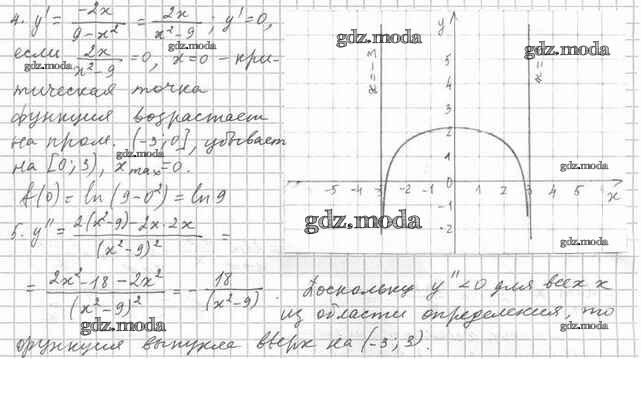 4. y' = -2x/(9-x²) = 2x/(x²-9); y' = 0,
если 2x/(x²-9) = 0, x = 0 - кри-
тическая точка
функция возрастает
на пром. (-3; 0], убывает
на [0; 3), x max = 0.
f(0) = ln(9-0²) = ln 9
5. y'' = (2(x²-9) - 2x·2x)/(x²-9)² =
= (2x²-18-2x²)/(x²-9)² = - 18/(x²-9). Поскольку y'' < 0 для всех x
из области определения, то
функция выпукла вверх на (-3; 3).
y
x = -3
x = 3
5
4
3
2
1
-5 -4 -3 -2 -1 0 1 2 3 4 5 6 x
-1
-2
gdz.moda
gdz.moda
gdz.moda
gdz.moda
gdz.moda
gdz.moda
gdz.moda
gdz.moda
gdz.moda
gdz.moda
gdz.moda